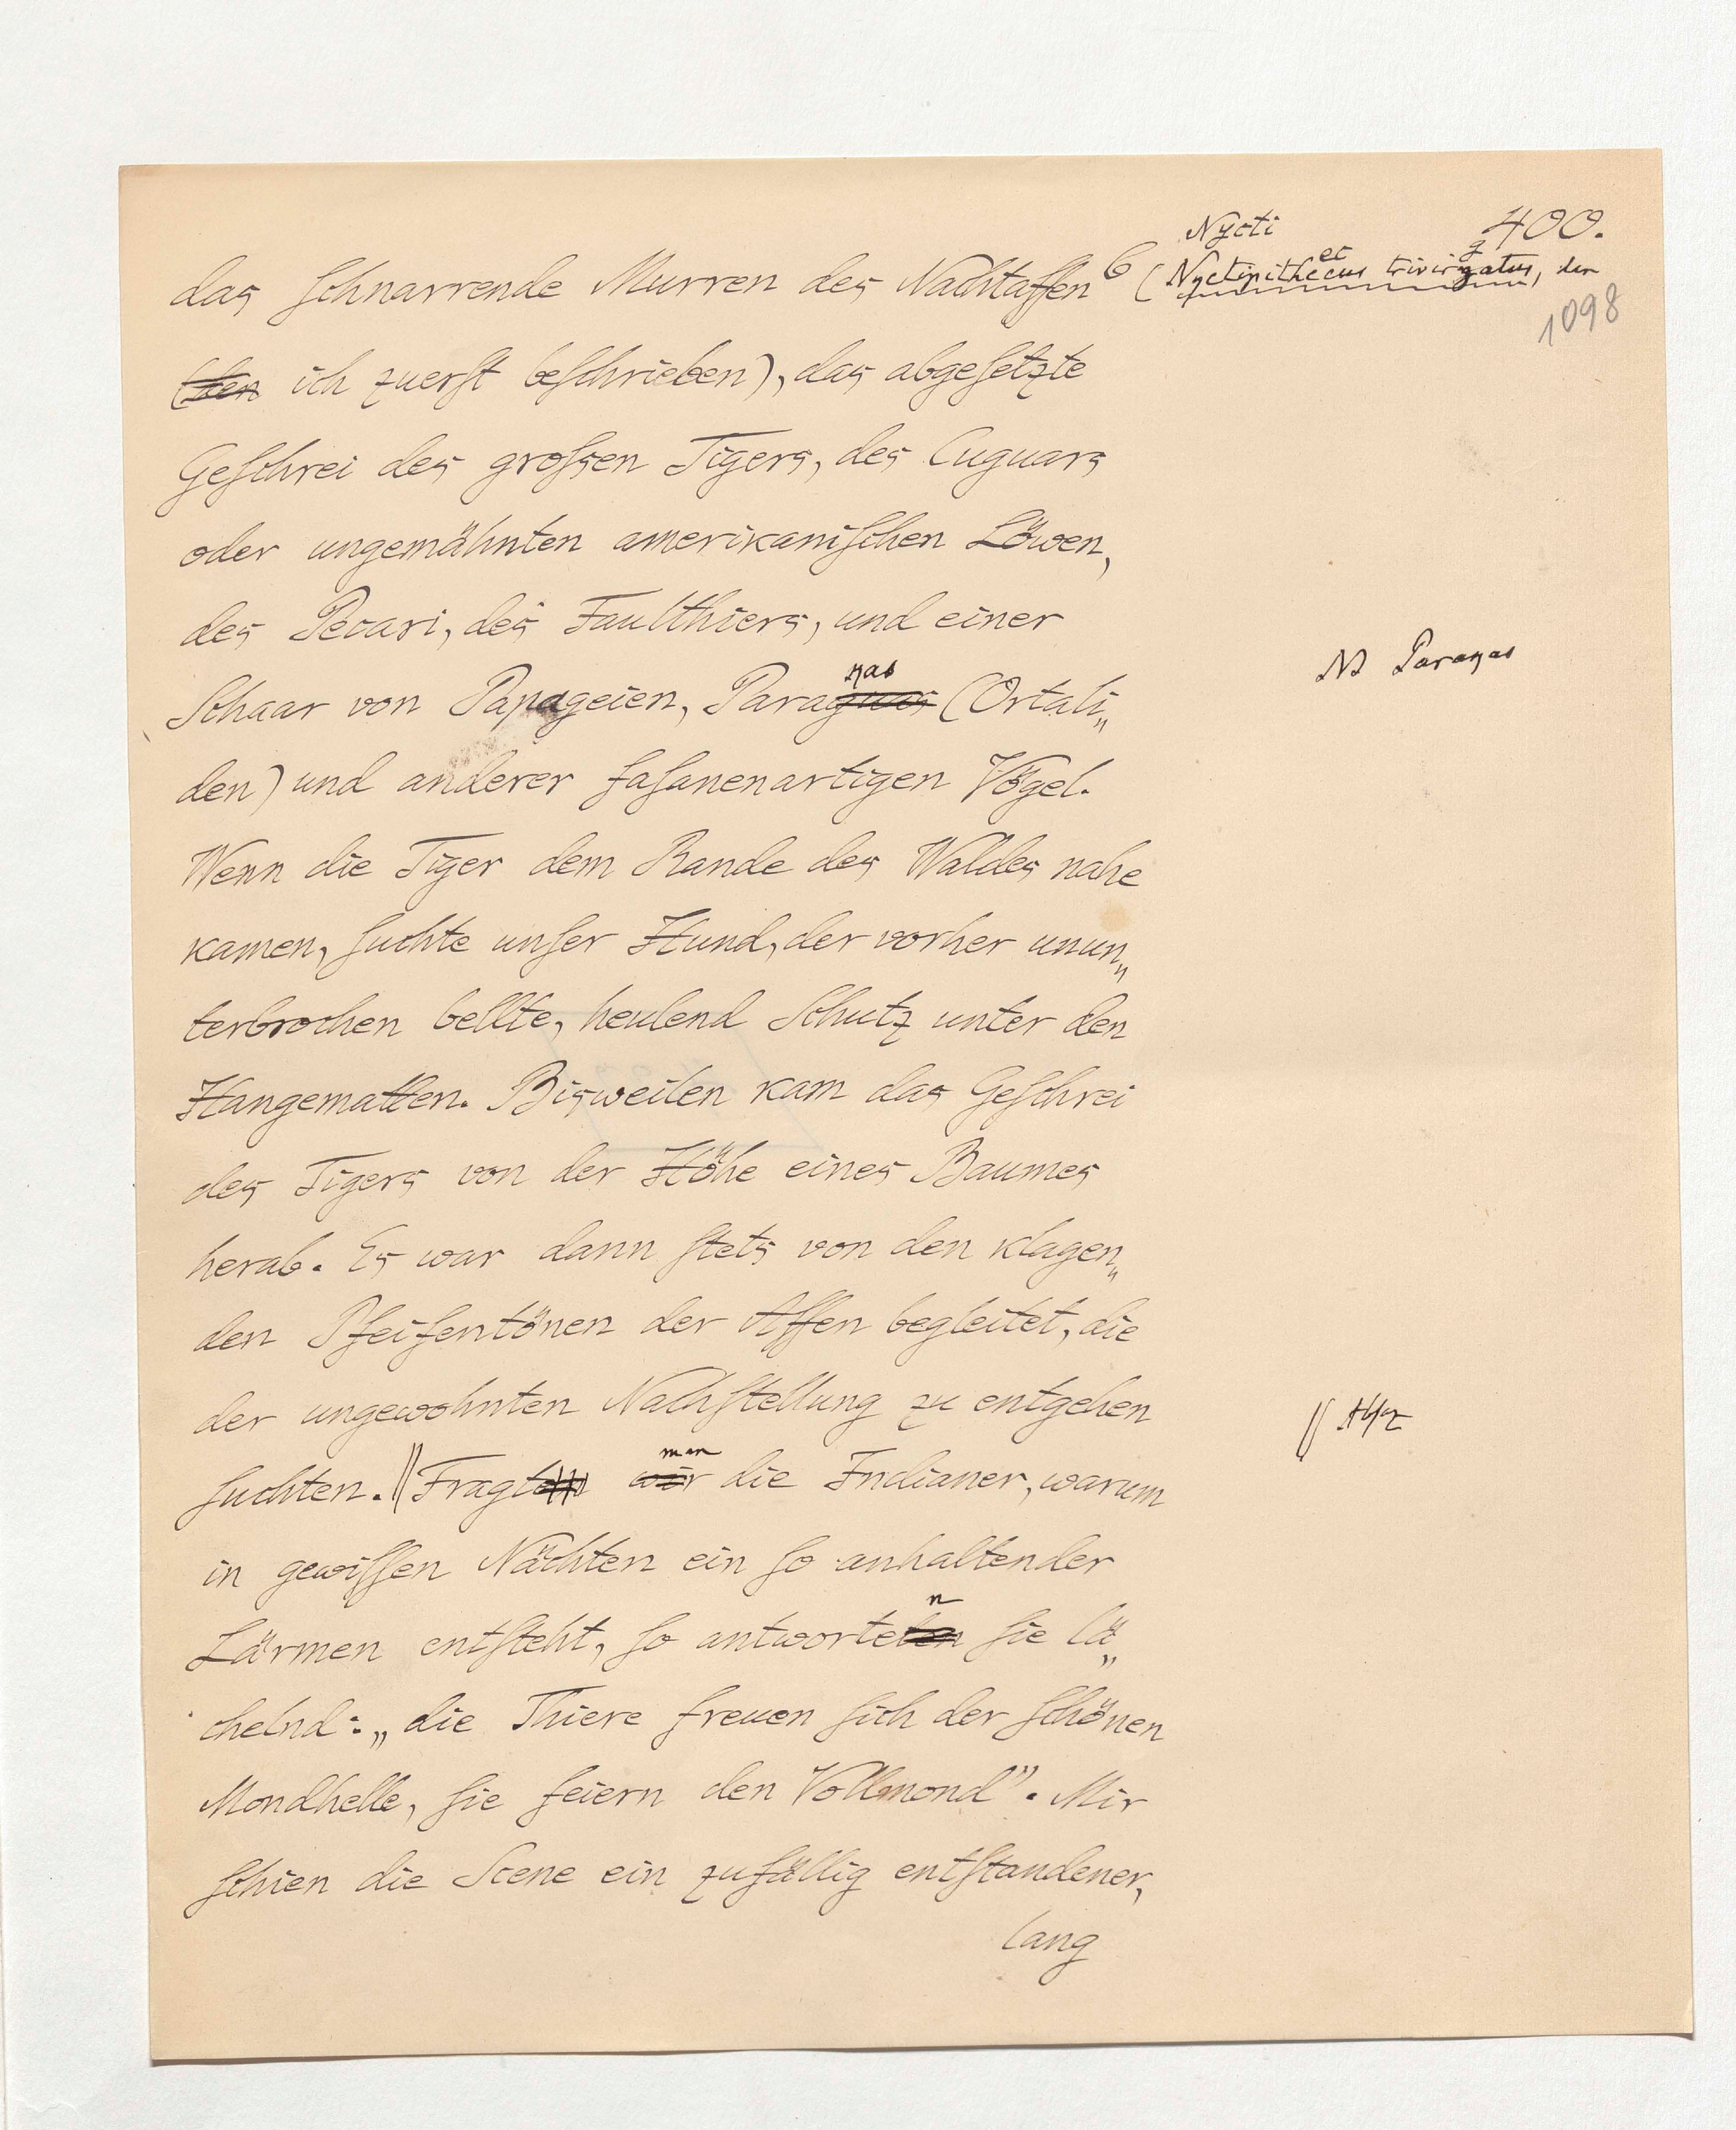 400.
Nycti
das schnarrende Murren des Nachtaffen 6 (Nyctipithecus trivirgatus, den
1098
(den ich zuerst beschrieben), das abgesetzte
Geschrei des grossen Tigers, des Cuguars
oder ungemähnten amerikanischen Löwen,
des Pecari, des Faulthiers, und einer
nas
N3 Paraqas
Schaar von Papageien, Paraguas (Ortali„
den) und anderer fasanenartigen Vögel.
Wenn die Tiger dem Rande des Waldes nahe
kamen, suchte unser Hund, der vorher unun„
terbrochen bellte, heulend Schutz unter den
Hangematten. Bisweilen kam das Geschrei
des Tigers von der Höhe eines Baumes
herab. Es war dann stets von den klagen„
den Pfeifentönen der Affen begleitet, die
der ungewohnten Nachstellung zu entgehen
man
suchten. || Fragten wir die Indianer, warum
in gewissen Nächten ein so anhaltender
n
Lärmen entsteht, so antworteten sie lä„
chelnd: „die Thiere freuen sich der schönen
Mondhelle, sie feiern den Vollmond”. Mir
schien die Scene ein zufällig entstandener,
lang